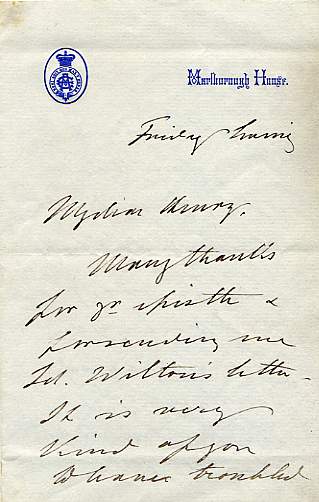 Marlborough House.
Friday Evening
My dear Henry,
Many thanks
for yr epistle &
for sending me
Ld. Wilton's letter
It is very
Kind of you
to have troubled